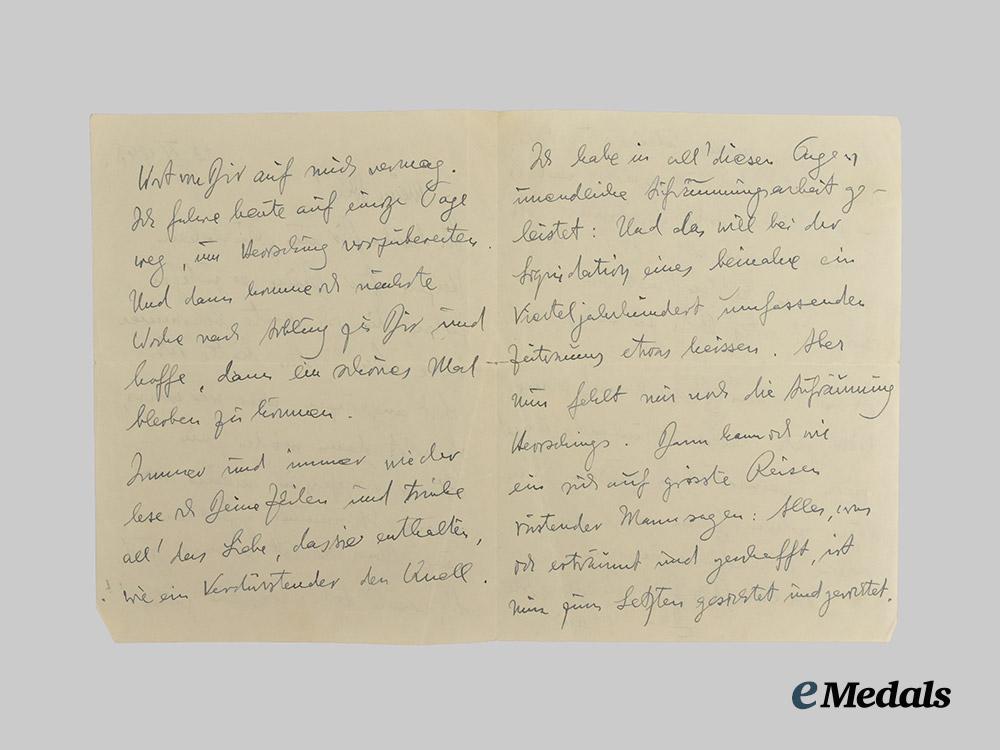 Wort von Dir auf mich vermag.
Ich fahre heute auf einige Tage
weg, um Herrsching vorzubereiten.
Und dann komme ich nächste
Woche nach zu Dir und
hoffe, dann ein schönes Mal
bleiben zu können.
Immer und immer wieder
lese ich Deine Zeilen und trinke
all' das Liebe, das sie enthalten,
wie ein Verdürstender den Quell.
Ich habe in all' diesen Tagen
unendliche Aufräumungsarbeit ge-
leistet: Und das will bei der
Liquidation eines beinahe ein
Vierteljahrhundert umfassenden
Zeitraums etwas heissen. Aber
nun fehlt nur noch die Aufräumung
Herrschings. Dann kann ich wie
ein sich auf grösste Reisen
rüstender Mann sagen: Alles, was
ich erträumt und geschafft, ist
nun zum Letzten gerichtet.
eMedals